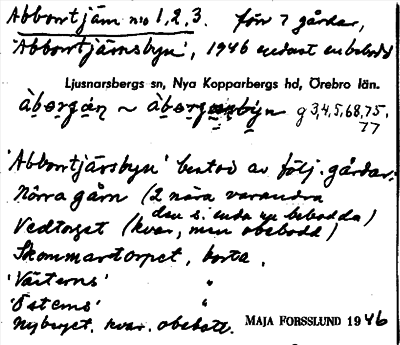 Abborrtjärn nio 1, 2, 3. förr 7 gårdar,
'Abborrtjärnsbyn', 1946 endast en bebodd
Ljusnarsbergs sn, Nya Kopparbergs hd, Örebro län.
àbor̥gán ~ àbor̥ byn g 3,4,5,68,75.
77
'Abborrtjärsbyn' bestod av följ. gårdar:
Norra gårn (2 nära varandra
den s. enda nu bebodda)
Vedtorpet (kvar, men obebodd)
Skommartorpet, borta.
'Västerns' "
'Österns' "
Nybyget, kvar, obebott.
MAJA FORSSLUND 1946